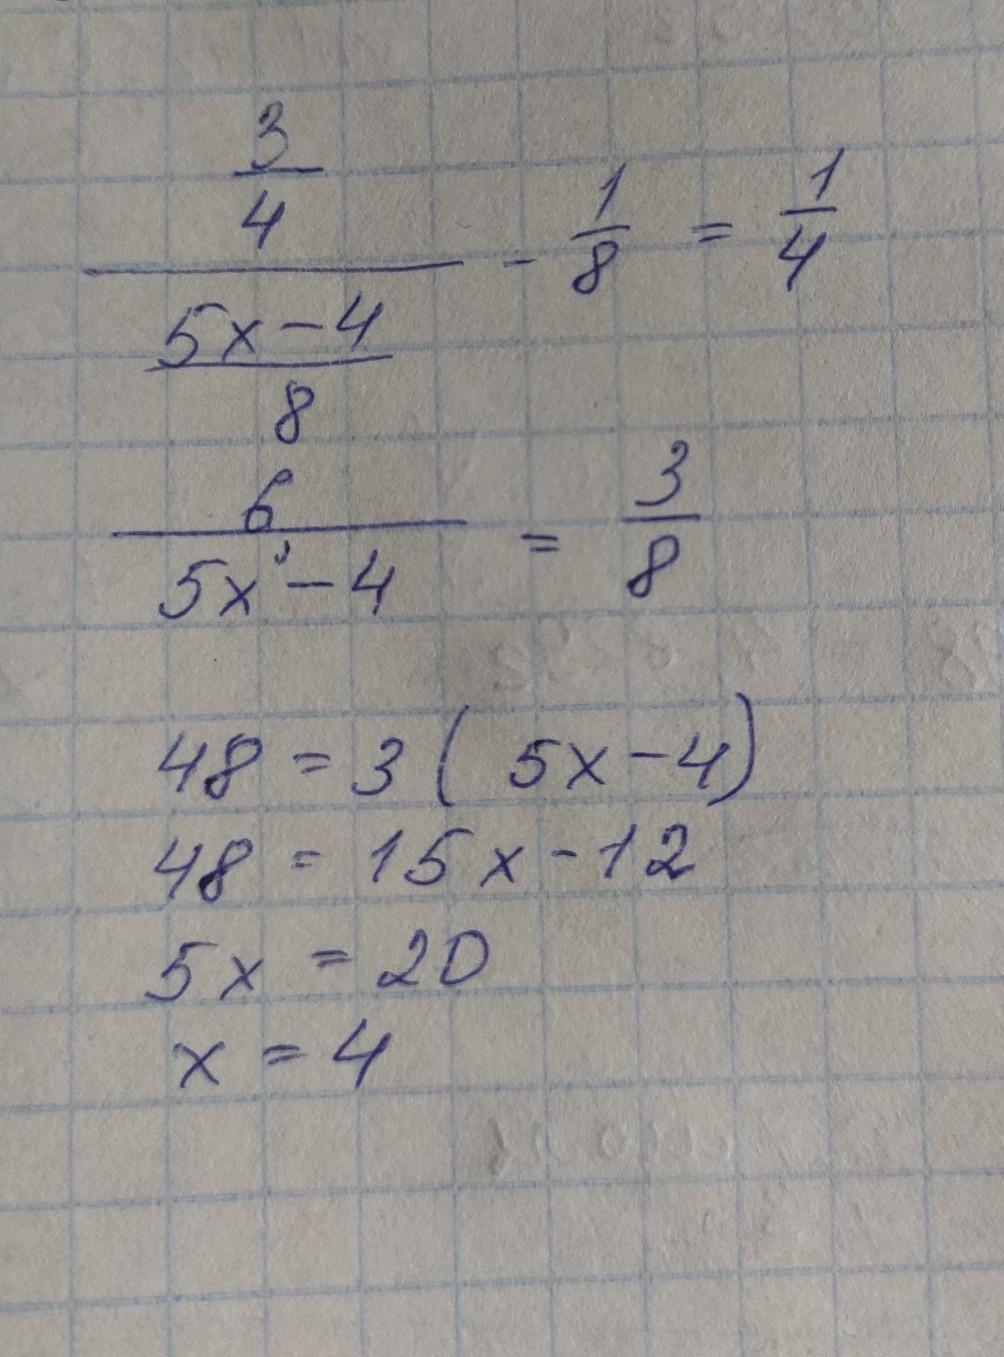 3/4 / (5x-4)/8 - 1/8 = 1/4
6/(5x-4) = 3/8
48 = 3(5x-4)
48 = 15x-12
5x = 20
x = 4